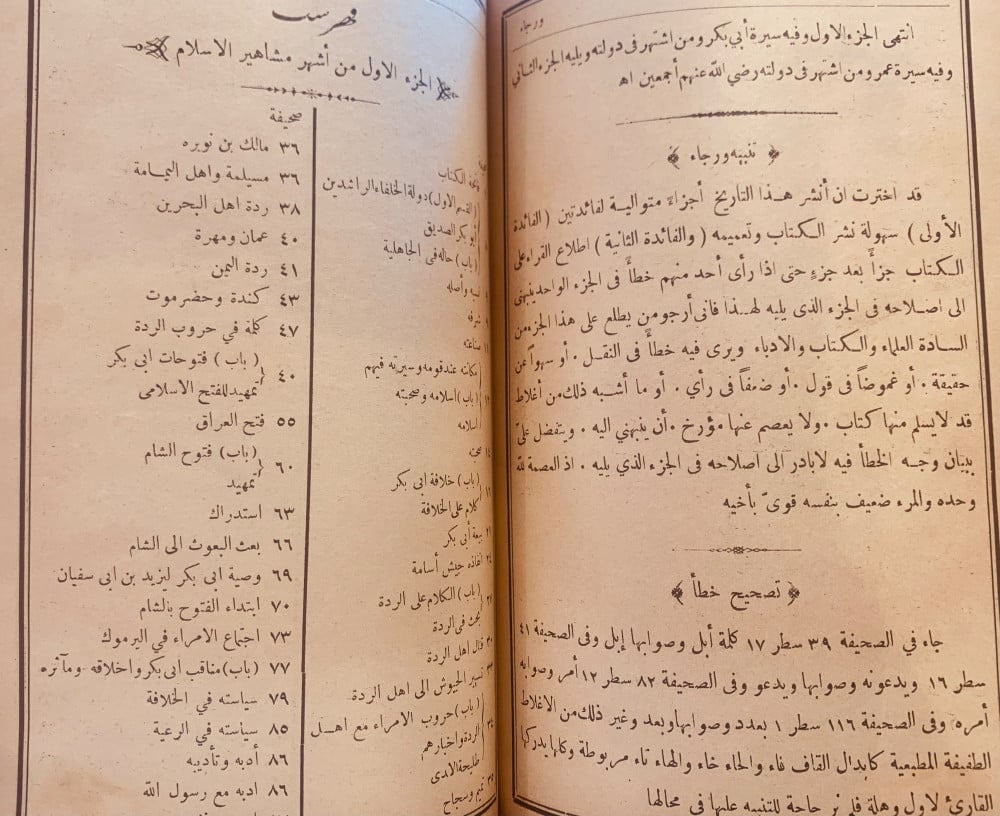 ورجاء
انتهى الجزء الاول وفيه سيرة أبي بكر ومن اشتهر فى دولته ويليه الجزء الثانى
وفيه سيرة عمر ومن اشتهر فى دولته رضي الله عنهم أجمعين اه
﴿ تنبيه ورجاء ﴾
قد اخترت ان أنشر هـذا التاريخ أجزاء متوالية لفائدتين ( الفائدة
الأولى ) سهولة نشر الكتاب وتعميمه ( والفائدة الثانية ) اطلاع القراء على
الكتاب جزأً بعد جزءٍ حتى اذا رأى أحد منهم خطأً فى الجزء الواحد ينبهنى
الى اصلاحه فى الجزء الذى يليه لهـذا فانى أرجو من يطلع على هذا الجزء من
السادة العلماء والكتاب والادباء ويرى فيه خطأً فى النقل . أو سهواً عن
حقيقة . أو غموضاً فى قول . أو ضعفاً فى رأي . أو ما أشبه ذلك من أغلاط
قد لايسلم منها كتاب . ولا يعصم عنها مؤرخ . أن ينبهني اليه . ويتفضل علىّ
ببيان وجه الخطأ فيه لابادر الى اصلاحه فى الجزء الذي يليه . اذ العصمة لله
وحده والمرء ضعيف بنفسه قوىّ بأخيه
﴿ تصحيح خطأ ﴾
جاء في الصحيفة ٣٩ سطر ١٧ كلمة أبل وصوابها إبل وفى الصحيفة ٤١
سطر ١٦ ويدعونه وصوابها ويدعو وفى الصحيفة ٨٢ سطر ١٢ أمر وصوابه
أمره وفى الصحيفة ١١٦ سطر ١ بعدد وصوابها وبعد وغير ذلك من الاغلاط
الطفيفة المطبعية كابدال القاف فاء والحاء خاء والهاء تاء مربوطة وكلها يدركها
القارئ لاول وهلة فلم نر حاجة للتنبيه عليها فى محالها
فهرست
الجزء الاول من أشهر مشاهير الاسلام
الكتاب
(القسم الاول) دولة الخلفاء الراشدين
أبو بكر الصديق
(باب) حاله فى الجاهلية
نسبه وأصله
شرفه
صناعته
مكانته عند قومه وسيرته فيهم
(باب) اسلامه وصحبته
اسلامه
صحبته
(باب) خلافة ابى بكر
كلام على الخلافة
بيعة أبى بكر
انفاذه جيش أسامة
(باب) الكلام على الردة
بحث فى الردة
قتال اهل الردة
تسيير الجيوش الى اهل الردة
(باب) حروب الامراء مع اهـل
الردة واخبارهم
طليحة الاسدى
تميم وسجاح
صحيفة
٣٦ مالك بن نويره
٣٦ مسيلمة واهل اليمامة
٣٨ ردة اهل البحرين
٤٠ عمان ومهرة
٤١ ردة اليمن
٤٣ كندة وحضرموت
٤٧ كلمة في حروب الردة
٤٠ (باب) فتوحات ابى بكر
تمهيد للفتح الاسلامى
٥٥ فتح العراق
٦٠ (باب) فتوح الشام
تمهيد
٦٣ استدراك
٦٦ بعث البعوث الى الشام
٦٩ وصية ابى بكر ليزيد بن ابى سفيان
٧٠ ابتداء الفتوح بالشام
٧٣ اجتماع الامراء في اليرموك
٧٧ (باب) مناقب ابى بكر واخلاقه ومآثره
٧٩ سياسته في الخلافة
٨٥ سياسته في الرعية
٨٦ أدبه وتأديبه
٨٦ ادبه مع رسول الله